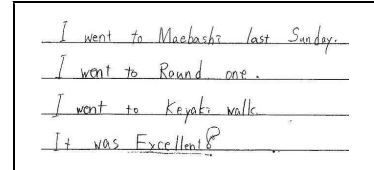 I went to Maebashi last Sunday.
I went to Round one.
I went to Keyaki walk
It was Excellent!